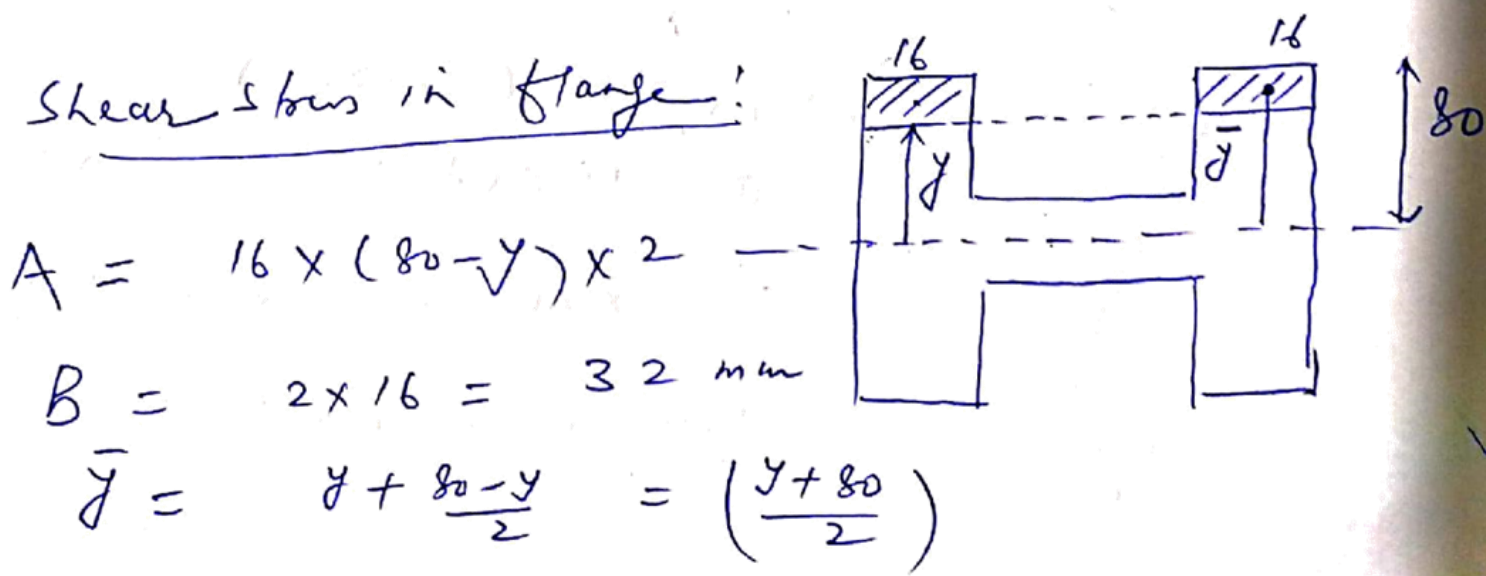 Shear stress in flange:
16
16
80
y
ȳ
A = 16 × (80-y) × 2
B = 2 × 16 = 32 mm
ȳ = y + (80-y)/2 = ((y+80)/2)